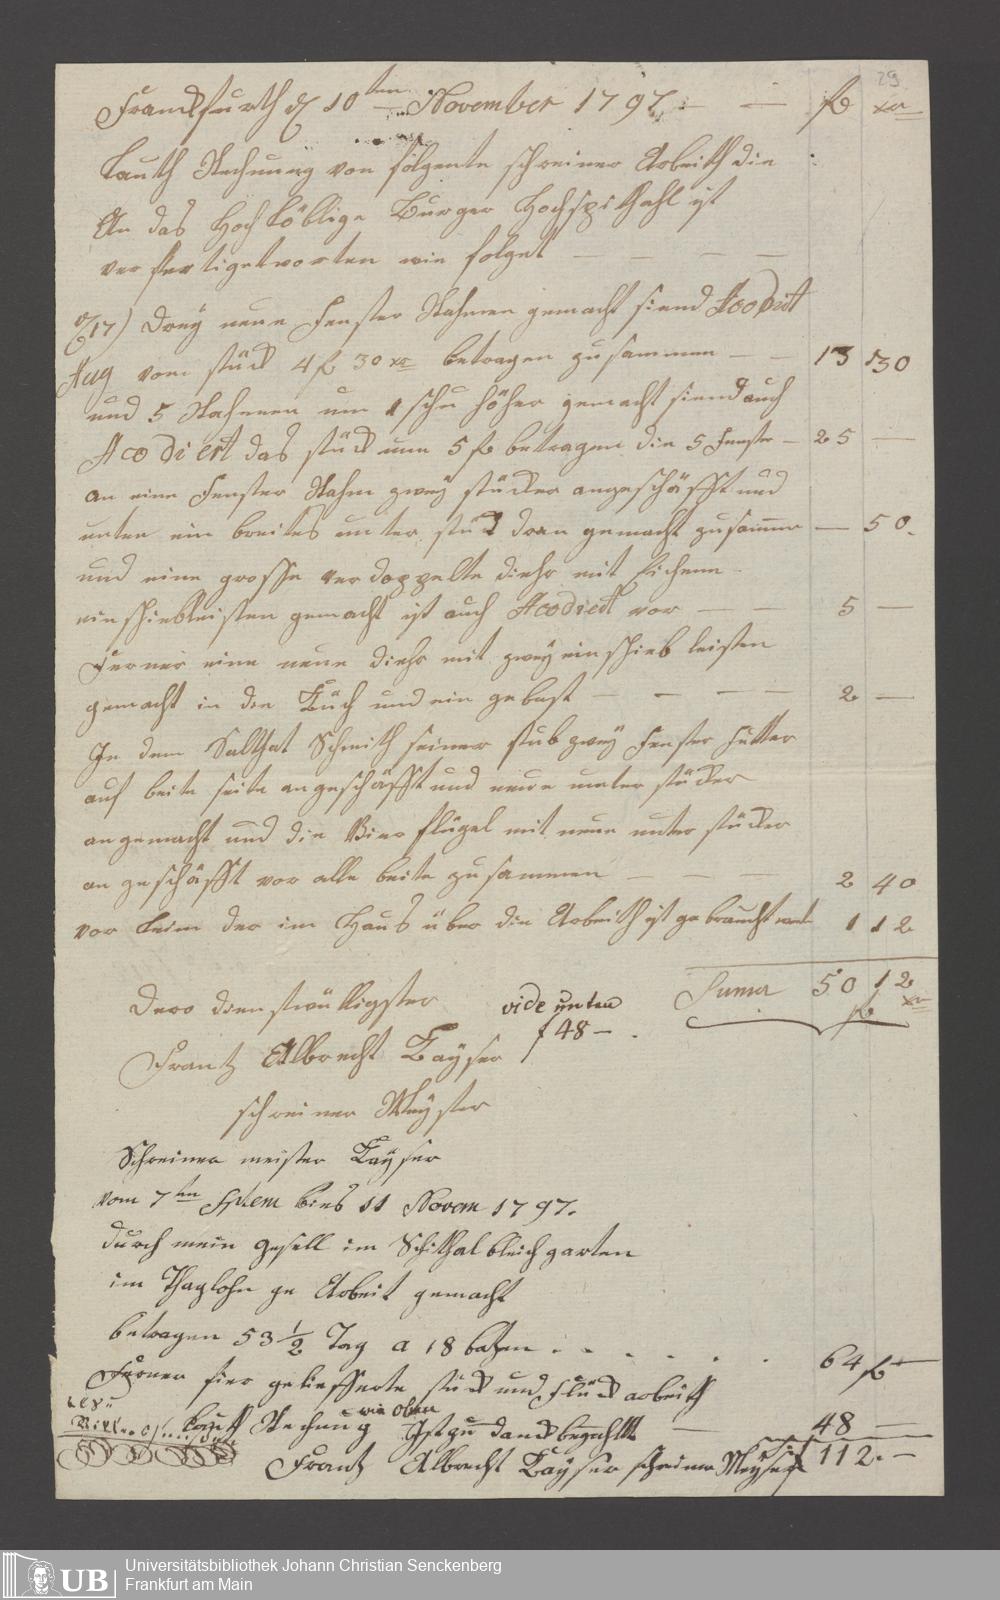 29
Franckfurth d 10ten November 1797. — — fl xr
Lauth Rechnung von folgente schreiner Arbeith die
An das Hochlöblige Burger Hochspithahl ist
verfertiget worten wie folget — — — —
17) Drey neue Fenster Rahmen gemacht siend Acodirt
Aug vom stück 4 f 30 xr betragen zusammen — — 13 30
und 5 Rahmen um 1 schu höher gemacht siend auch
Acodiert das stück um 5 fl betragen die 5 Fenster — 25 —
an eine Fenster Rahm zwey stücker angeschäfft und
unten ein breites unter stück dran gemacht zusamen — 50.
und eine grosse verdoppelte diehr mit Eichene
einschiebleisten gemacht ist auch Acodiert vor — — 5 —
Ferner eine neue diehr mit zwey einschieb leisten
gemacht in die Küch und ein gebast — — — — 2 —
In dem Salthat Schmith seiner stub zwey Fenster Futter
auf beite seite angeschäfft und neue unter stücker
angemacht und die Vier flügel mit neue unter stücker
angeschäfft vor alle beite zusammen — — — 2 40
vor Leim der im Haus über die Arbeith ist gebraucht 1 12
Suma 50 12
fl xr
Dero dienstwilligster
vide unten
f 48 —.
Frantz Albrecht Kayser
schreiner Meyster
Schreiner meister Kayser
vom 7ten bies 11 Novem 1797.
durch mein gesell im Spithal bleichgarten
im Thaglohn ge Arbeit gemacht
betragen 53 1/2 Tag a 18 batzen . . . . . . 64 fl —
Ferner hier geliefferte stück und stück arbeith
lauth Rechnung wie oben — 48 —
Ist zu danck bezahlt
Frantz Albrecht Kayser schreiner Meyster f 112. —
UB Universitätsbibliothek Johann Christian Senckenberg
Frankfurt am Main